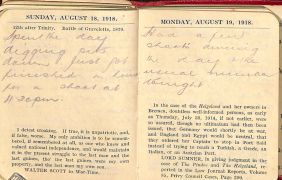 SUNDAY, AUGUST 18, 1918.
12th after Trinity. Battle of Gravelotte, 1870.
Spent the day
digging pits
down I just got
finished in time
for a shoot at
11.30pm.
I detest croaking. If it is unpatriotic, and,
if false, worse. My only ambition is to be remem-
bered, if remembered at all, as one who knew and
valued national independence, and would maintain
it in the present struggle to the last man and the
last guinea, tho' the last guinea were my own
property, and the last man my own son.
WALTER SCOTT in War-Time.
MONDAY, AUGUST 19, 1918.
Had a few
shoots during
the day & the
usual
tonight
In the case of the Heligoland and her owners in
Bremen, doubtless well-informed persons, as early
as Thursday, July 30, 1914, if not earlier, were
so assured, though no ultimatum had then been
issued, that Germany would shortly be at war,
and England and Egypt would be nested, that
they ordered her Captain to stop in Port Said
instead of trying to reach a Turkish, a Greek, an
Italian, or an Austrian Port.
LORD SUMNER, in giving judgment in the
case of The Pindos and The Helgoland, re-
ported in the Law Journal Reports, Volume
85, Privy Council Cases, Page